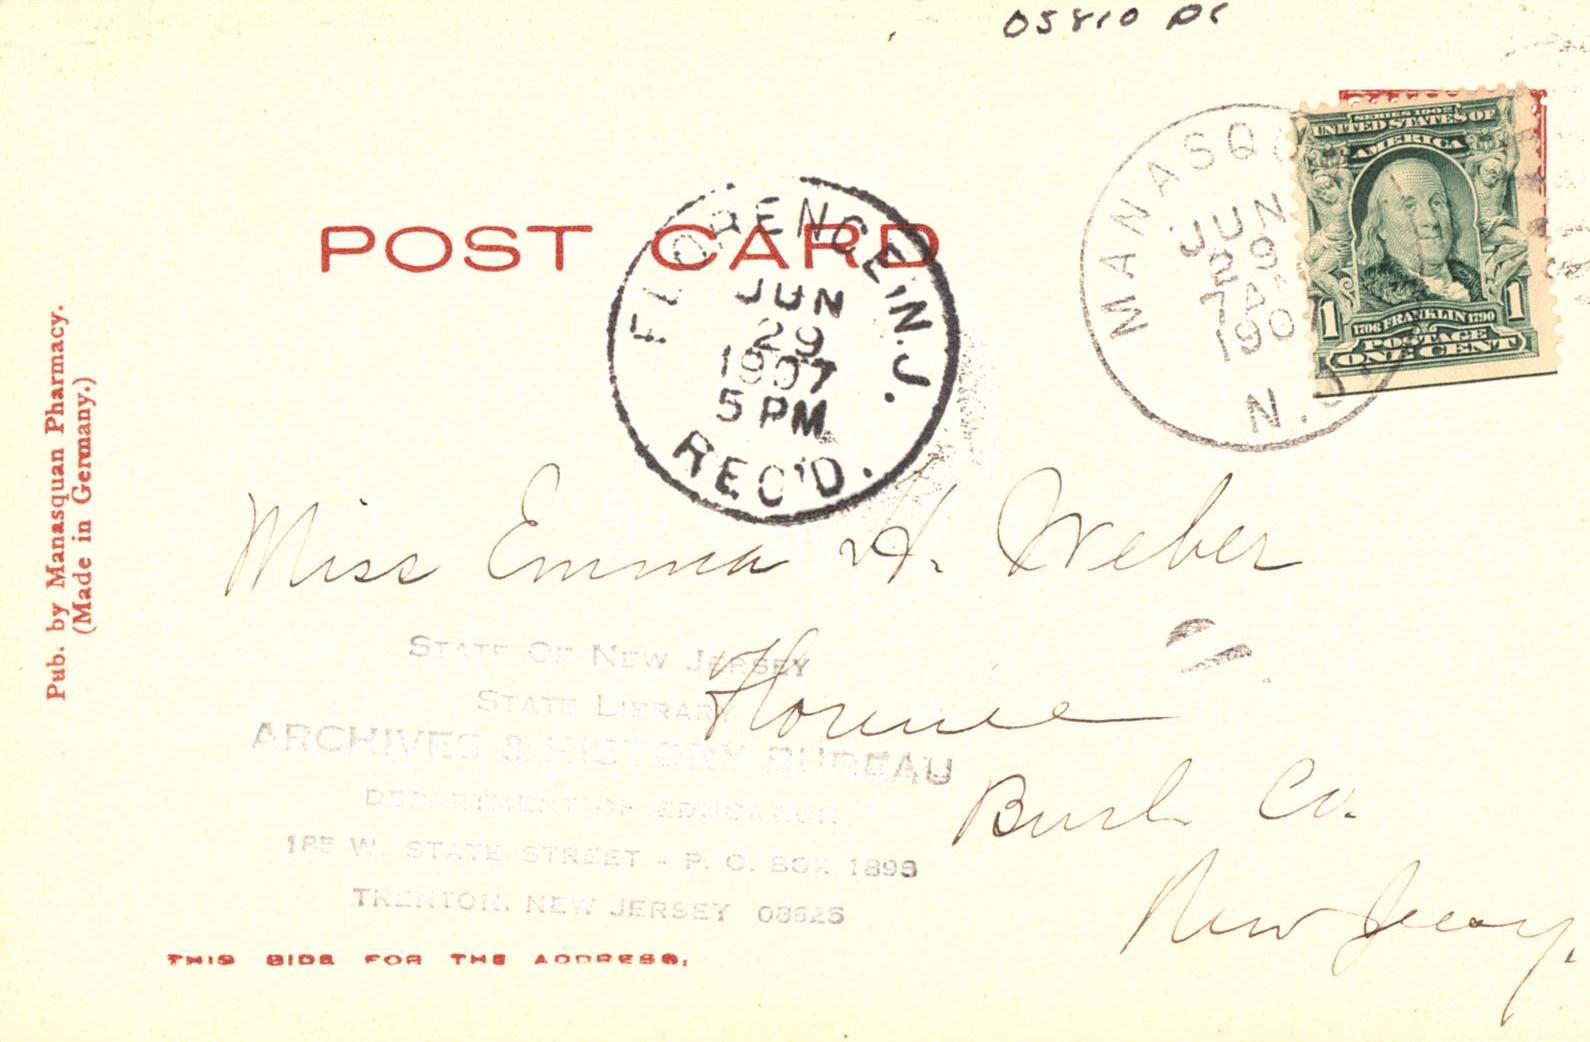 05810 PC
SERIES 1902
UNITED STATES OF
AMERICA
1 1
1706 FRANKLIN 1790
POSTAGE
ONE CENT
MANASQ
JUN
29
7 A
190
N.J.
POST CARD
FLORENCE, N.J.
JUN
29
1907
5 PM
REC'D.
Pub. by Manasquan Pharmacy.
(Made in Germany.)
Miss Emma H. Weber
Florence
Burl. Co.
New Jersey.
STATE OF NEW JERSEY
STATE LIBRARY
ARCHIVES & HISTORY BUREAU
DEPARTMENT OF EDUCATION
185 W. STATE STREET - P. O. BOX 1898
TRENTON, NEW JERSEY 08625
THIS SIDE FOR THE ADDRESS.